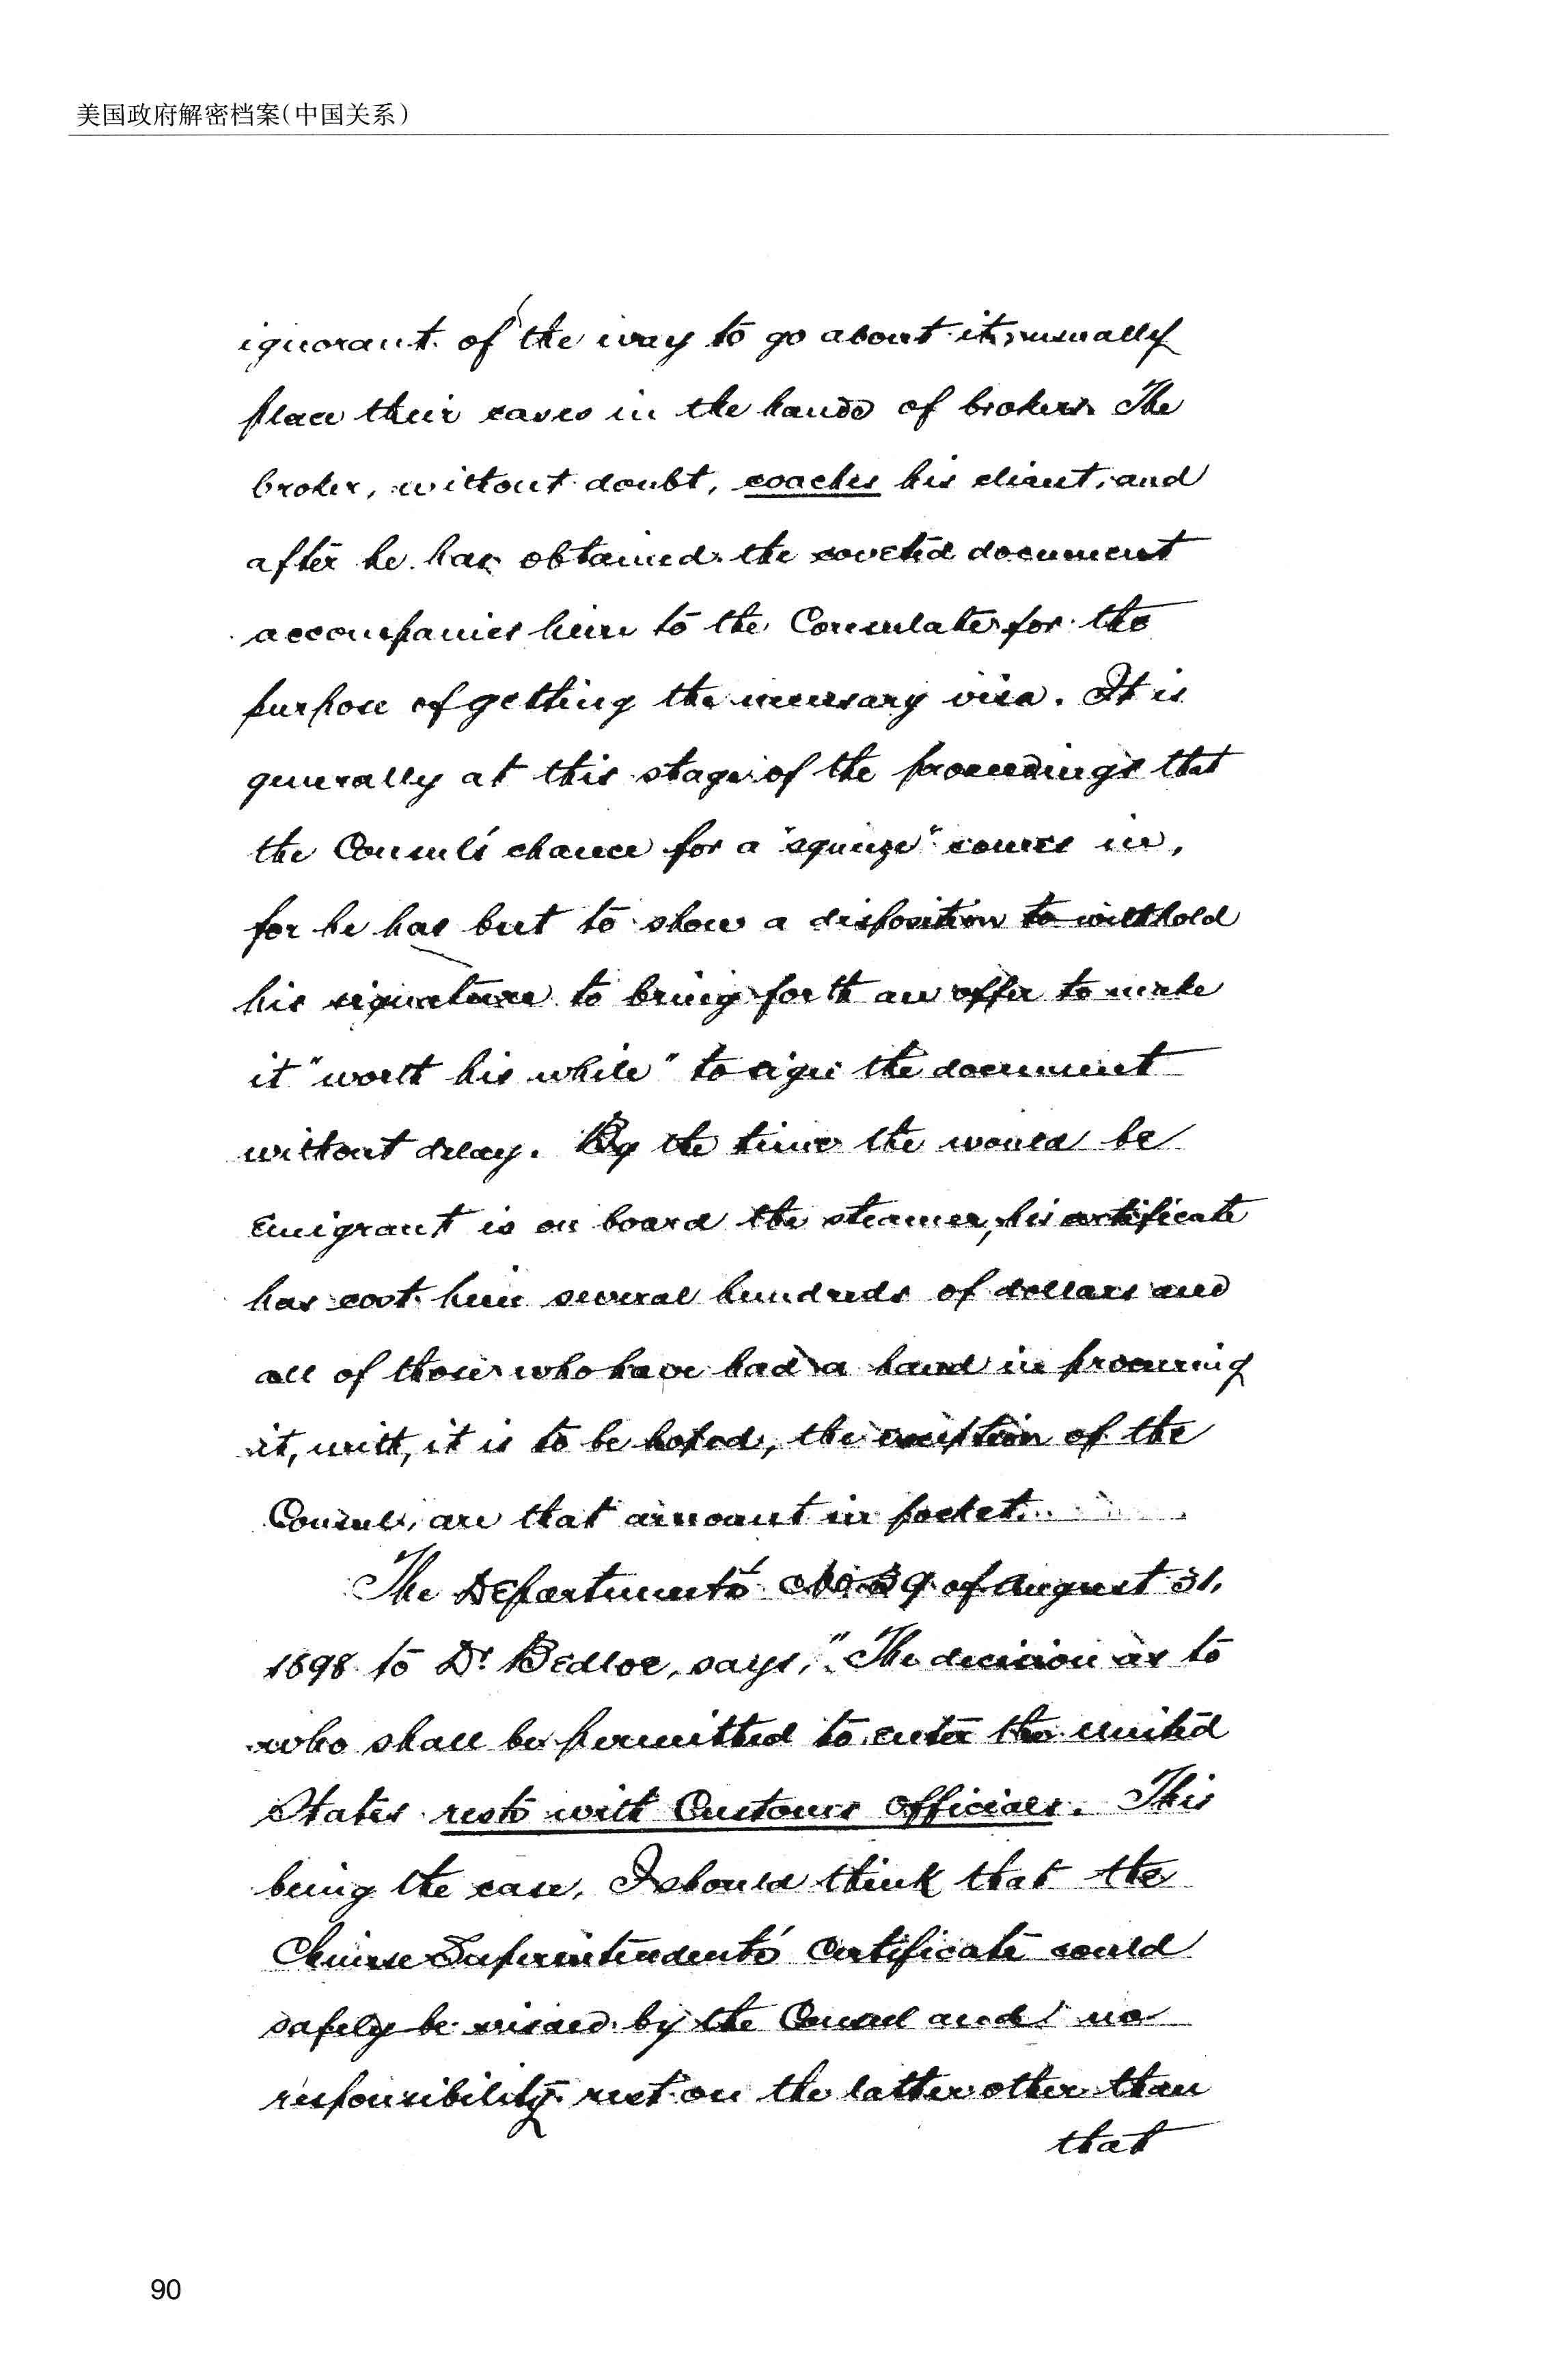 美国政府解密档案(中国关系)
ignorant of the way to go about it, usually
place their cases in the hands of brokers. The
broker, without doubt, coaches his client, and
after he has obtained the coveted document
accompanies him to the Consulate for the
purpose of getting the necessary visa. It is
generally at this stage of the proceedings that
the Consul's chance for a "squeeze" comes in,
for he has but to show a disposition to withhold
his signature to bring forth an offer to make
it "worth his while" to sign the document
without delay. By the time the would be
emigrant is on board the steamer, his certificate
has cost him several hundreds of dollars and
all of those who have had a hand in procuring
it, with, it is to be hoped, the exception of the
Consul, are that amount in pocket.
The Department's No. 39 of August 31,
1898 to Dr Bedloe, says, "The decision as to
who shall be permitted to enter the United
States rests with Customs Officials. This
being the case, I should think that the
Chinese Superintendent's Certificate could
safely be visaed by the Consul and no
responsibility rest on the latter other than
that
90